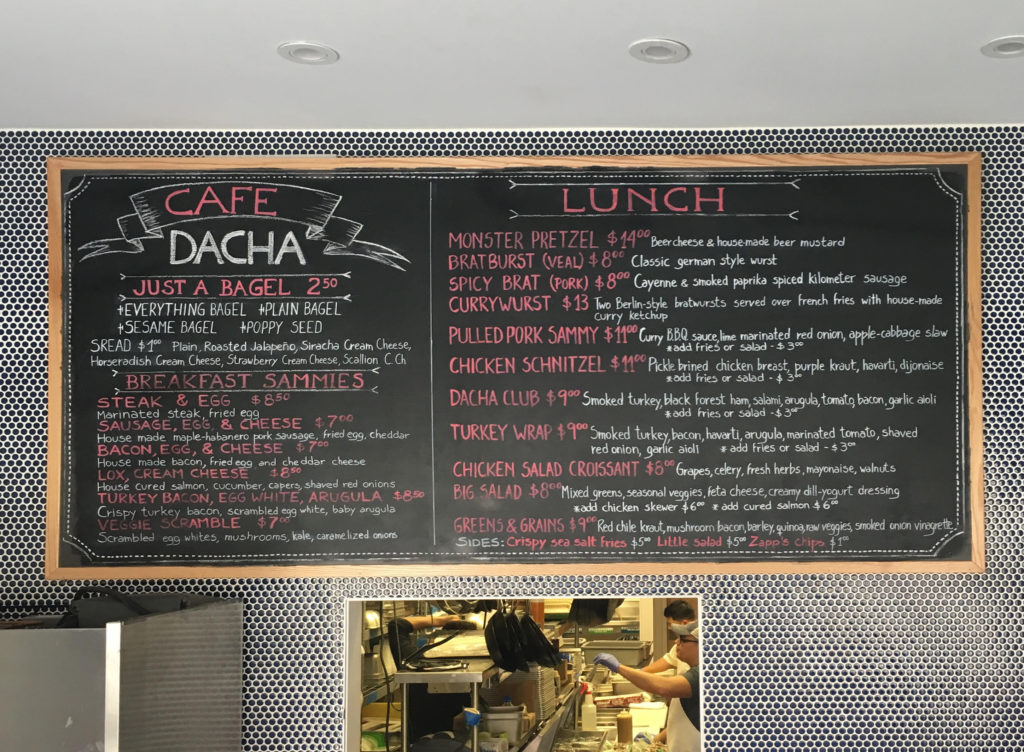 CAFE
DACHA
JUST A BAGEL 2.50
+EVERYTHING BAGEL +PLAIN BAGEL
+SESAME BAGEL +POPPY SEED
SREAD $1.00 Plain, Roasted Jalapeño, Siracha Cream Cheese,
Horseradish Cream Cheese, Strawberry Cream Cheese, Scallion C. Ch.
BREAKFAST SAMMIES
STEAK & EGG $8.50
Marinated steak, fried egg
SAUSAGE, EGG, & CHEESE $7.00
House made maple-habanero pork sausage, fried egg, cheddar
BACON, EGG, & CHEESE $7.00
House made bacon, fried egg and cheddar cheese
LOX, CREAM CHEESE $8.50
House cured salmon, cucumber, capers, shaved red onions
TURKEY BACON, EGG WHITE, ARUGULA $8.50
Crispy turkey bacon, scrambled egg white, baby arugula
VEGGIE SCRAMBLE $7.00
Scrambled egg whites, mushrooms, kale, caramelized onions
LUNCH
MONSTER PRETZEL $14.00 Beer cheese & house-made beer mustard
BRATBURST (VEAL) $8.00 Classic german style wurst
SPICY BRAT (PORK) $8.00 Cayenne & smoked paprika spiced kilometer sausage
CURRYWURST $13 Two Berlin-style bratwursts served over french fries with house-made
curry ketchup
PULLED PORK SAMMY $11.00 Curry B.B.Q. sauce, lime marinated red onion, apple-cabbage slaw
*add fries or salad - $3.00
CHICKEN SCHNITZEL $11.00 Pickle brined chicken breast, purple kraut, havarti, dijonaise
*add fries or salad - $3.00
DACHA CLUB $9.00 Smoked turkey, black forest ham, salami, arugula, tomato, bacon, garlic aioli
*add fries or salad - $3.00
TURKEY WRAP $9.00 Smoked turkey, bacon, havarti, arugula, marinated tomato, shaved
red onion, garlic aioli * add fries or salad - $3.00
CHICKEN SALAD CROISSANT $8.00 Grapes, celery, fresh herbs, mayonaise, walnuts
BIG SALAD $8.00 Mixed greens, seasonal veggies, feta cheese, creamy dill-yogurt dressing
*add chicken skewer $6.00 * add cured salmon $6.00
GREENS & GRAINS $9.00 Red chile kraut, mushroom bacon, barley, quinoa, raw veggies, smoked onion vinagrette
SIDES: Crispy sea salt Fries $5.00 Little salad $5.00 Zapp's chips $1.00